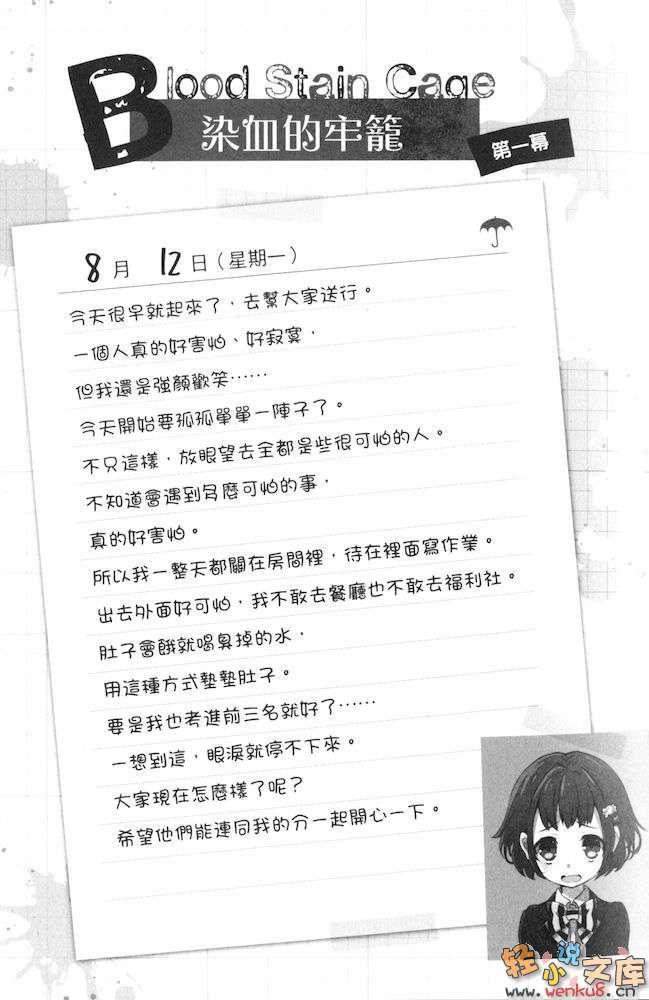 Blood Stain Cage
染血的牢籠
第一幕
8月 12日（星期一）
今天很早就起來了，去幫大家送行。
一個人真的好害怕、好寂寞，
但我還是強顏歡笑……
今天開始要孤孤單單一陣子了。
不只這樣，放眼望去全都是些很可怕的人。
不知道會遇到多麼可怕的事，
真的好害怕。
所以我一整天都關在房間裡，待在裡面寫作業。
出去外面好可怕，我不敢去餐廳也不敢去福利社。
肚子會餓就喝臭掉的水，
用這種方式墊墊肚子。
要是我也考進前三名就好了……
一想到這，眼淚就停不下來。
大家現在怎麼樣了呢？
希望他們能連同我的分一起開心一下。
轻小说文库
www.wenku8.cn